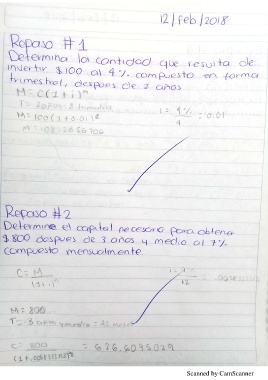 12/feb/2018
Repaso #1
Determina la cantidad que resulta de
invertir $100 al 4% compuesto en forma
trimestral, despues de 2 años
M = C(1+i)ⁿ
i = 4%/4 = 0.01
M = 100(1+0.01)⁸
M = 108.2856706
Repaso #2
Determine el capital necesario para obtener
$800 despues de 3 años y medio al 7%
compuesto mensualmente.
C = M/(1+i)ⁿ
12
M = 800
C = 800
= 626.6095029
Scanned by CamScanner